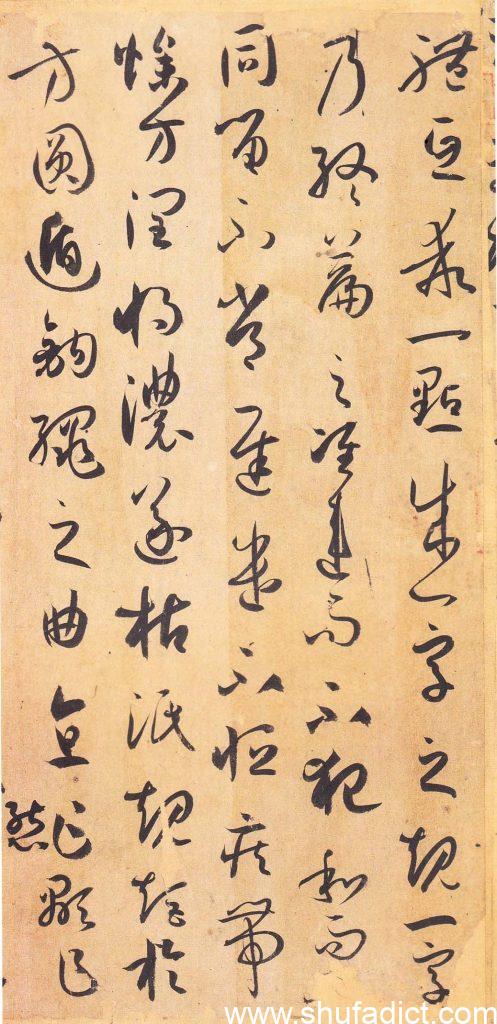 體互乖一點成一字之規一字
乃終篇之准違而不犯和而不
同留不常遲遣不恒疾帶
燥方潤將濃遂枯泯規矩於
方圓遁鉤繩之曲直乍顯乍
www.shufadict.com